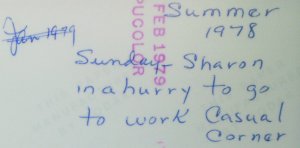 Jan 1979
Summer
1978
FEB 1979
PUCOLOR
Sunday- Sharon
in a hurry to go
to work Casual
Corner